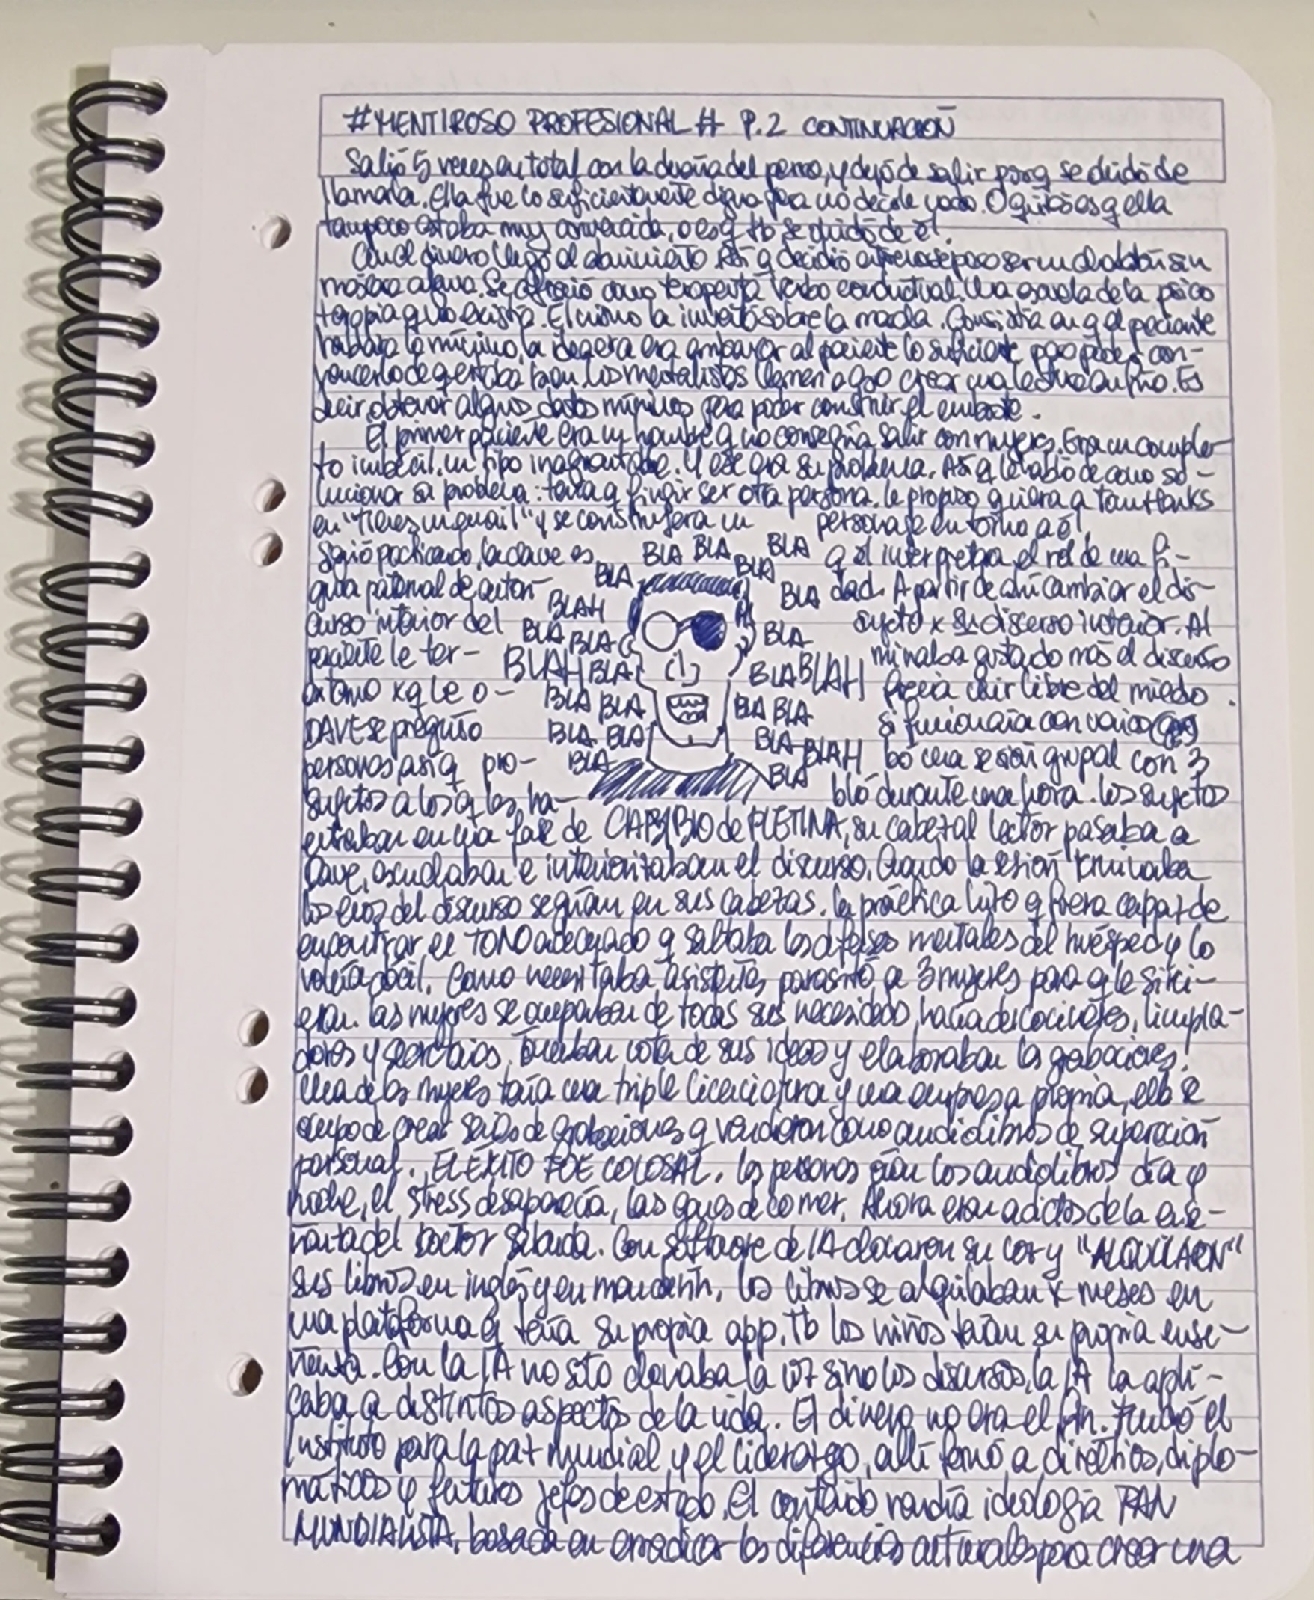 #MENTIROSO PROFESIONAL# P.2 CONTINUACIÓN
Salió 5 veces en total con la dueña del perro, y dejó de salir porq se olvidó de
llamarla. Ella fue lo suficientemente digna para no decirle nada. O quizás es q ella
tampoco estaba muy convencida, o es q tb se olvidó de él.
Con el dinero llegó el aburrimiento. Así q decidió
máscara alguna. Se ofreció como terapeuta verbo conductual. Una escuela de la psico
terapia q no existía. El mismo la inventó sobre la marcha. Consistía en q el paciente
hablara lo mínimo, la idea era embaucar al paciente lo suficiente para poder con-
vencerlo de Los mentalistas llaman a eso crear una lectura en frío. Es
decir obtener algunos datos mínimos para poder construir el embuste.
El primer paciente era un hombre q no conseguía salir con mujeres. Era un comple-
to imbécil, un tipo inaguantable. Y ese era su problema. Así q le habló de como so-
lucionar su problema: tenía q fingir ser otra persona. Le propuso q viera a Tom Hanks
en "Tienes un email" y se construyera un personaje en torno a él
Siguió practicando, la clave es q él interpretara el rol de una fi-
gura paternal de autori dad. A partir de ahí cambiar el dis-
curso interior del sujeto x su discurso interior. Al
paciente le ter- minaba gustando más el discurso
externo xq le o- frecía vivir libre del miedo.
DAVE se preguntó si funcionaría con varias
personas así q pro- bó una sesión grupal con 3
sujetos a los q les ha- bló durante una hora. Los sujetos
BLA BLA BLA BLA
BLA BLA
BLAH
BLA BLA BLA
BLAH BLA BLA BLAH
BLA BLA BLA BLA
BLA BLA BLA BLAH
BLA BLA
entraban en una fase de CAMBIO de PLETINA, su cabezal lector pasaba a
Dave, escuchaban e interiorizaban el discurso. Cuando la sesión terminaba
los ecos del discurso seguían en sus cabezas. La práctica hizo q fuera capaz de
encontrar el TONO adecuado q saltaba las defensas mentales del huésped y lo
volvía dócil. Como necesitaba asistentes parasitó a 3 mujeres para q le sirvi-
eran. Las mujeres se ocupaban de todas sus necesidades, hacían de cocineras, limpia-
doras y secretarias. Tomaban nota de sus ideas y elaboraban las grabaciones.
Una de las mujeres tenía una triple licenciatura y una empresa propia, ella se
ocupó de crear series de grabaciones q vendieron como audiolibros de superación
personal. EL ÉXITO FUE COLOSAL. Las personas oían los audiolibros día y
noche, el stress desaparecía, las ganas de comer. Ahora eran adictos de la ense-
ñanza del Doctor Con software de IA clonaron su voz y "ALQUILARON"
sus libros en inglés y en mandarín, los libros se alquilaban x meses en
una plataforma q tenía su propia app. Tb los niños tenían su propia ense-
ñanza. Con la IA no sólo clonaba la voz sino los discursos, la IA la apli-
caba a distintos aspectos de la vida. El dinero no era el fin. Fundó el
Instituto para la paz mundial y el liderazgo, allí formó a directivos, diplo-
máticos y futuros jefes de estado. El contenido vendía ideología PAN
MUNDIALISTA, basada en erradicar las diferencias culturales para crear una